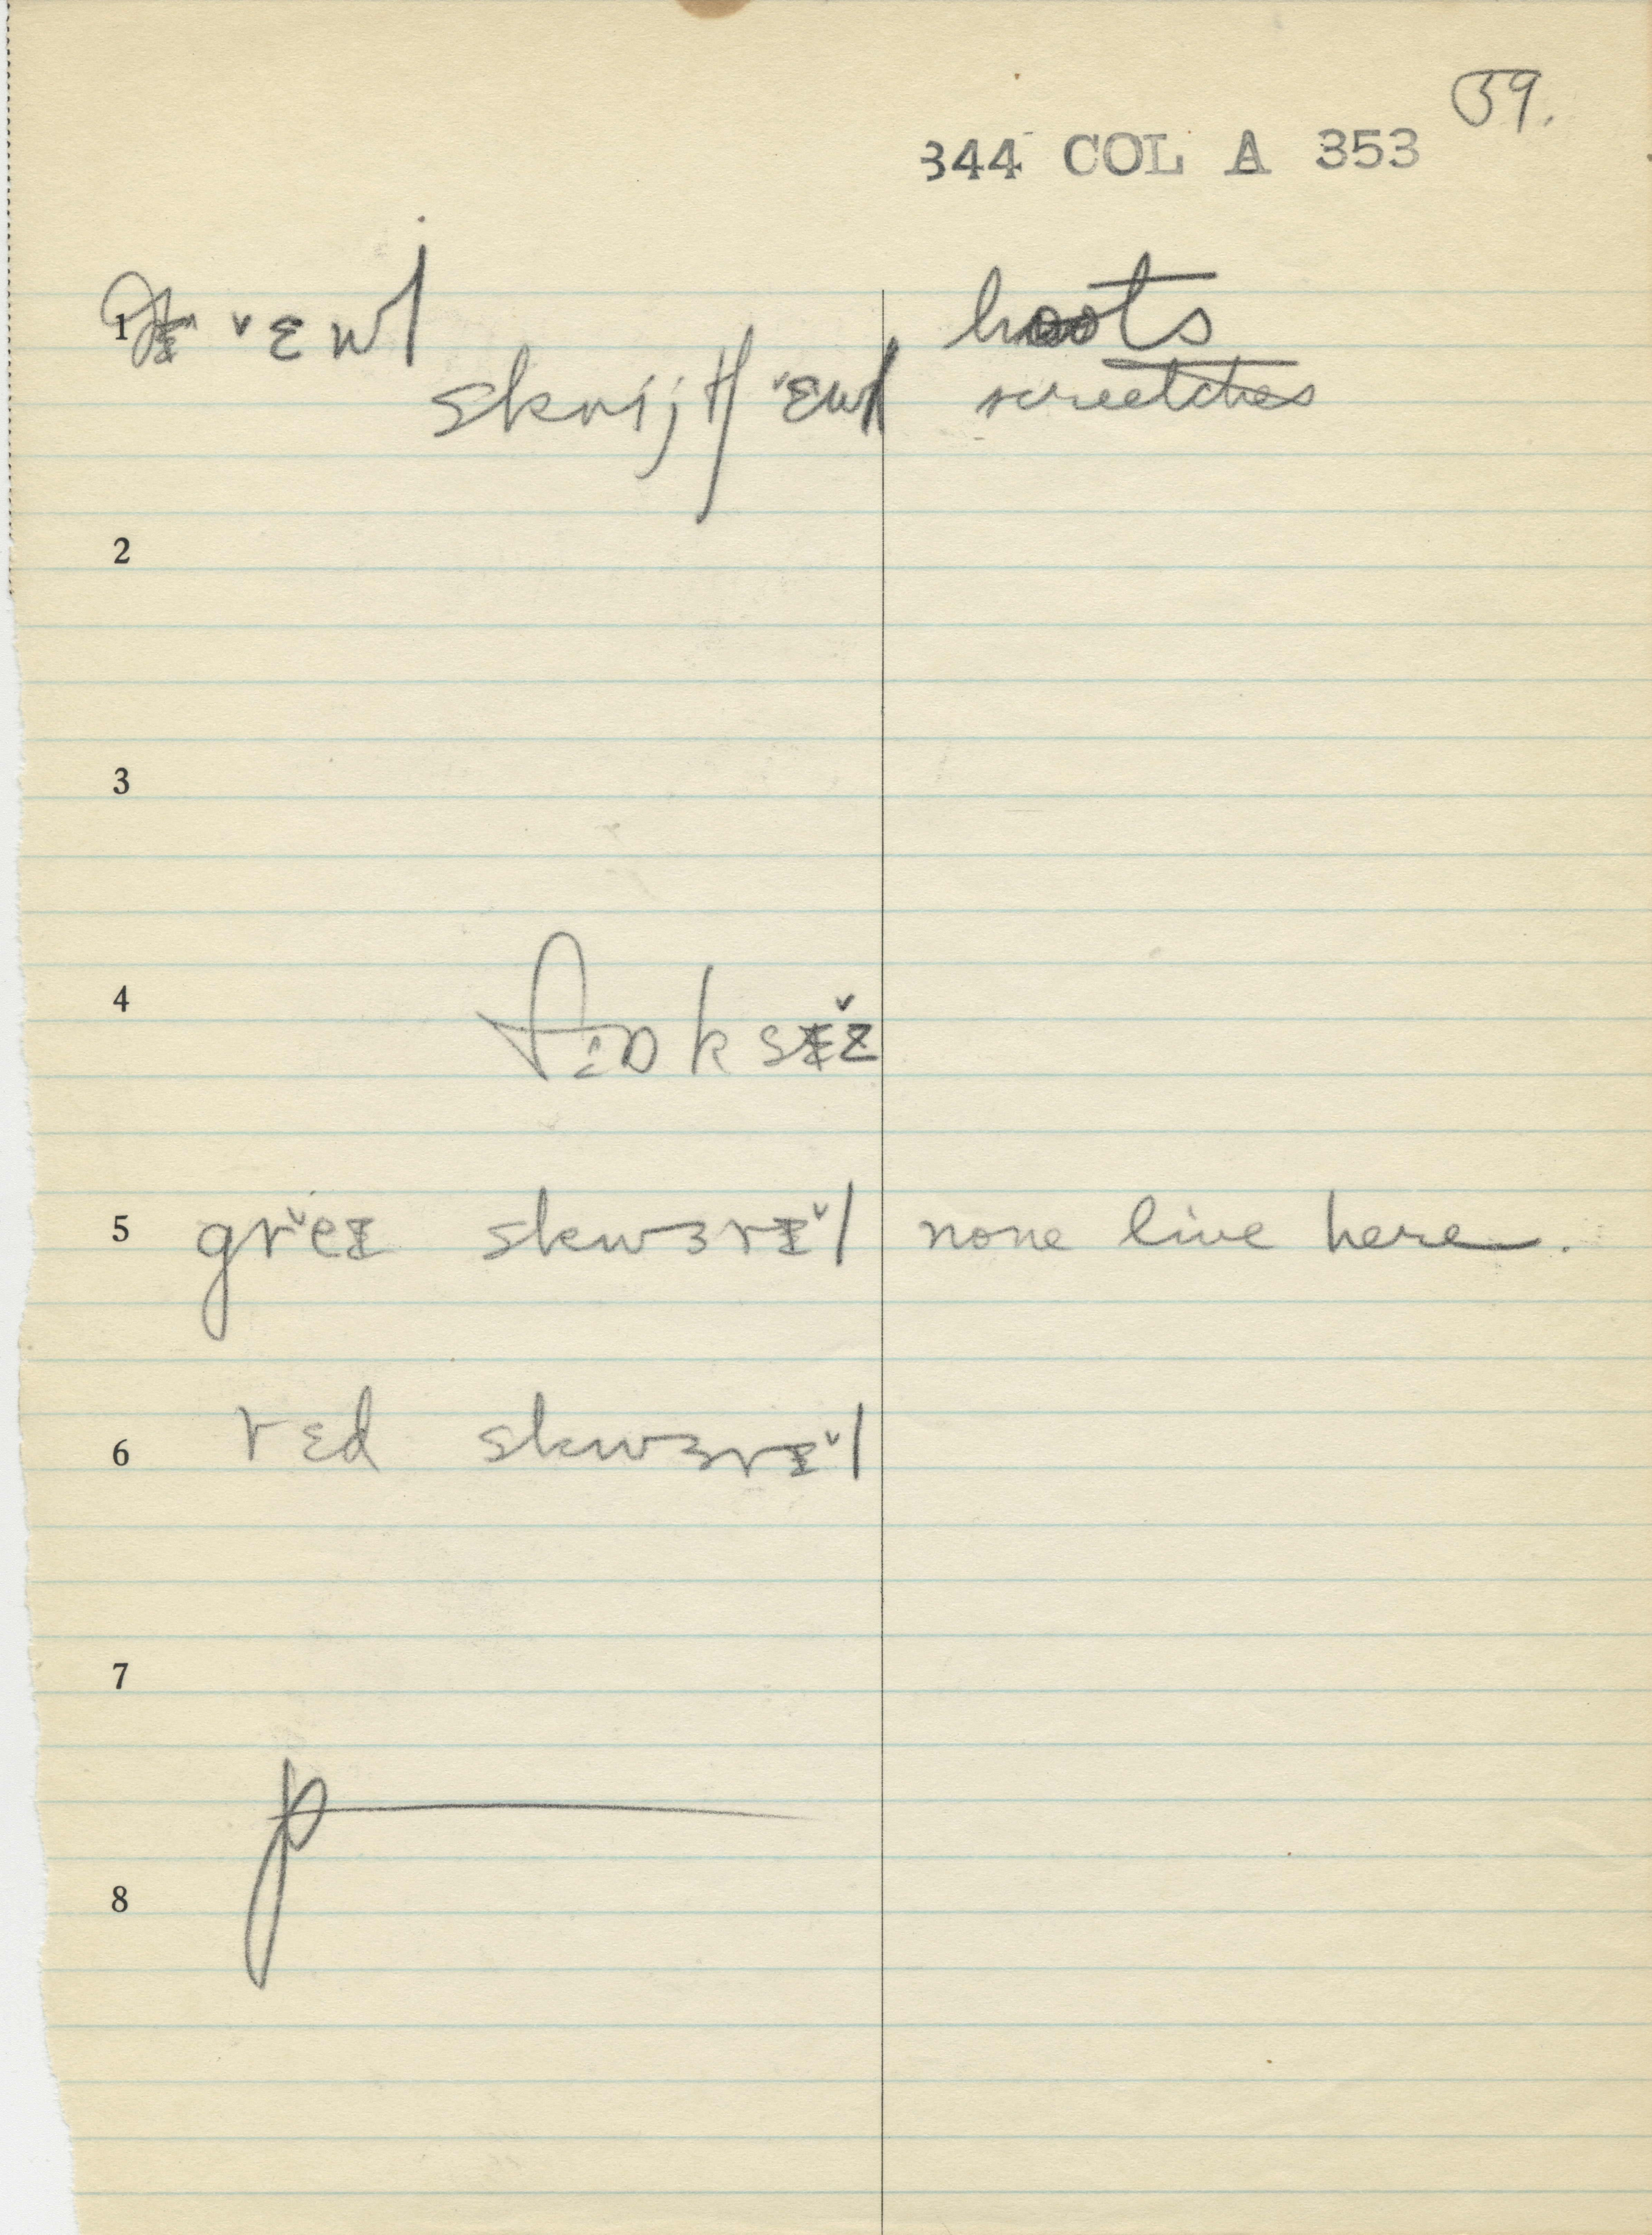 59.
344 COL A 353
1 ˇɛwl hoots
skrijtʃ ˇɛwl screetches
2
3
4 ksᵻ̌z
5 grˇeᵻ skwɜrᵻˇl none live here.
6 rɛd skwɜrᵻˇl
7
8